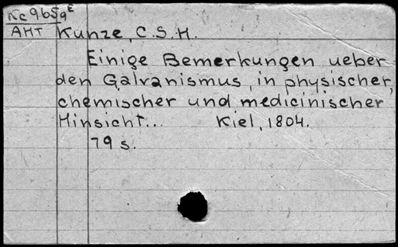 Kc965gE
AHT Kunze, C.S.H.
Einige Bemerkungen ueber
den Galvanismus, in physischer,
chemischer und medicinischer
Hinsicht... Kiel, 1804.
79 s.